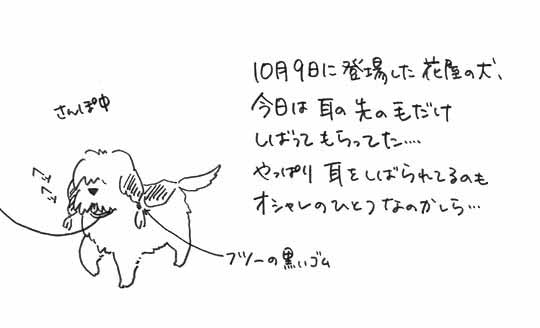 10月9日に登場した花屋の犬、
今日は耳の先の毛だけ
しばってもらってた….
やっぱり耳をしばられてるのも
オシャレのひとつなのかしら…
さんぽ中
フツーの黒いゴム